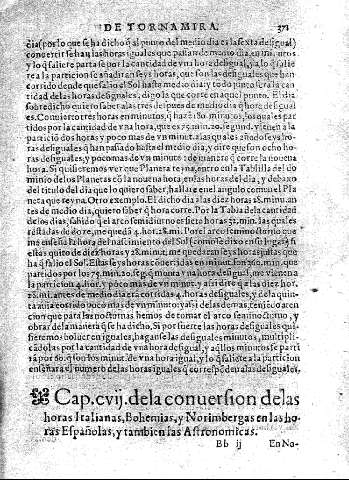 DE TORNAMIRA. 371
dia (por lo que se ha dicho q̃ al punto del medio dia es la sexta desigual)
conuertirse hã q̃ las horas iguales que passan de medio dia, en minutos
y lo q̃ saliere parta se por la cantidad de vna hora desigual, y a lo q̃ salie
re a la particion se añadirã seys horas, que son las desiguales que han
corrido dende que salio el Sol hasta medio dia, y todo junto sera la can
tidad delas horas desiguales, digo la que corre en aquel punto. El dia
sobredicho quiero saber a las tres despues de medio dia q̃ hora de desigual
es. Conuierto tres horas en minutos, q̃ hazẽ 180. minutos, los quales par
tidos por la cantidad de vna hora, que es 75. min. 20. segund. vienẽ a la
particiõ dos horas y poco mas de vn minut. a las quales añado seys ho
ras desiguales q̃ han passado hasta el medio dia, y dire que son ocho ho-
ras desiguales, y poco mas de vn minuto: de manera q̃ corre la nouena
hora. Si quisieremos ver que Planeta reyna, entro en la Tablilla del do
minio de los Planetas cõ la nouena hora, en las horas del dia, y debaxo
del titulo del dia que lo quiero saber, hallare en el angulo comun el Pla
neta que reyna. Otro exemplo. El dicho dia a las diez horas 28. minu.
antes de medio dia, quiero saber q̃ hora corre. Por la Tabla de la cantidad
de los dias, sabido q̃ el arco semidiurno es siete horas 32. min. las quales
restadas de doze, me quedã 4. hor. 28. mi. Por el arco seminocturno que
me enseña la hora del nacimiento del Sol (como se dixo en su lugar) si
estas quito de diez horas y 28. minut. me quedaran seys horas justas que
ha q̃ salio el Sol. Estas seys horas cõuertidas en minut. hazẽ 360. min. que
partidos por los 75. min. 20. seg. q̃ monta vna hora desigual, me viene a
la particion 4. hor. y poco mas de vn minut. y assi dire q̃ a las diez hor.
28. mi. antes de medio dia erã corridas 4. horas desiguales, y de la quin-
ta auia corrido poco mas de vn minuto: y assi de las demas, teniẽdo aten
cion que para las nocturnas hemos de tomar el arco seminocturno, y
obrar de la manera q̃ se ha dicho. Si por suerte las horas desiguales qui
sieremos boluer en iguales, hagan se las desiguales minutos, multipli-
cãdolas por la cantidad de vna hora desigual, y aq̃llos minutos se parti
rã por 60. q̃ son los minut. de vna hora igual, y lo q̃ saliere a la particion
enseñara el numero de las horas iguales q̃ correspõdẽ a las desiguales.
Cap. cvij. de la conuersion de las
horas Italianas, Bohemias, y Norimbergas en las ho
ras Españolas, y tambien las Astronomicas.
Bb ij En No-